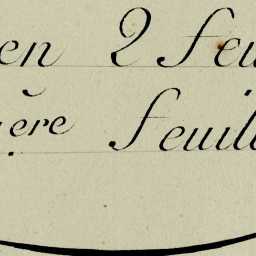 en 2 feu
ère feuill